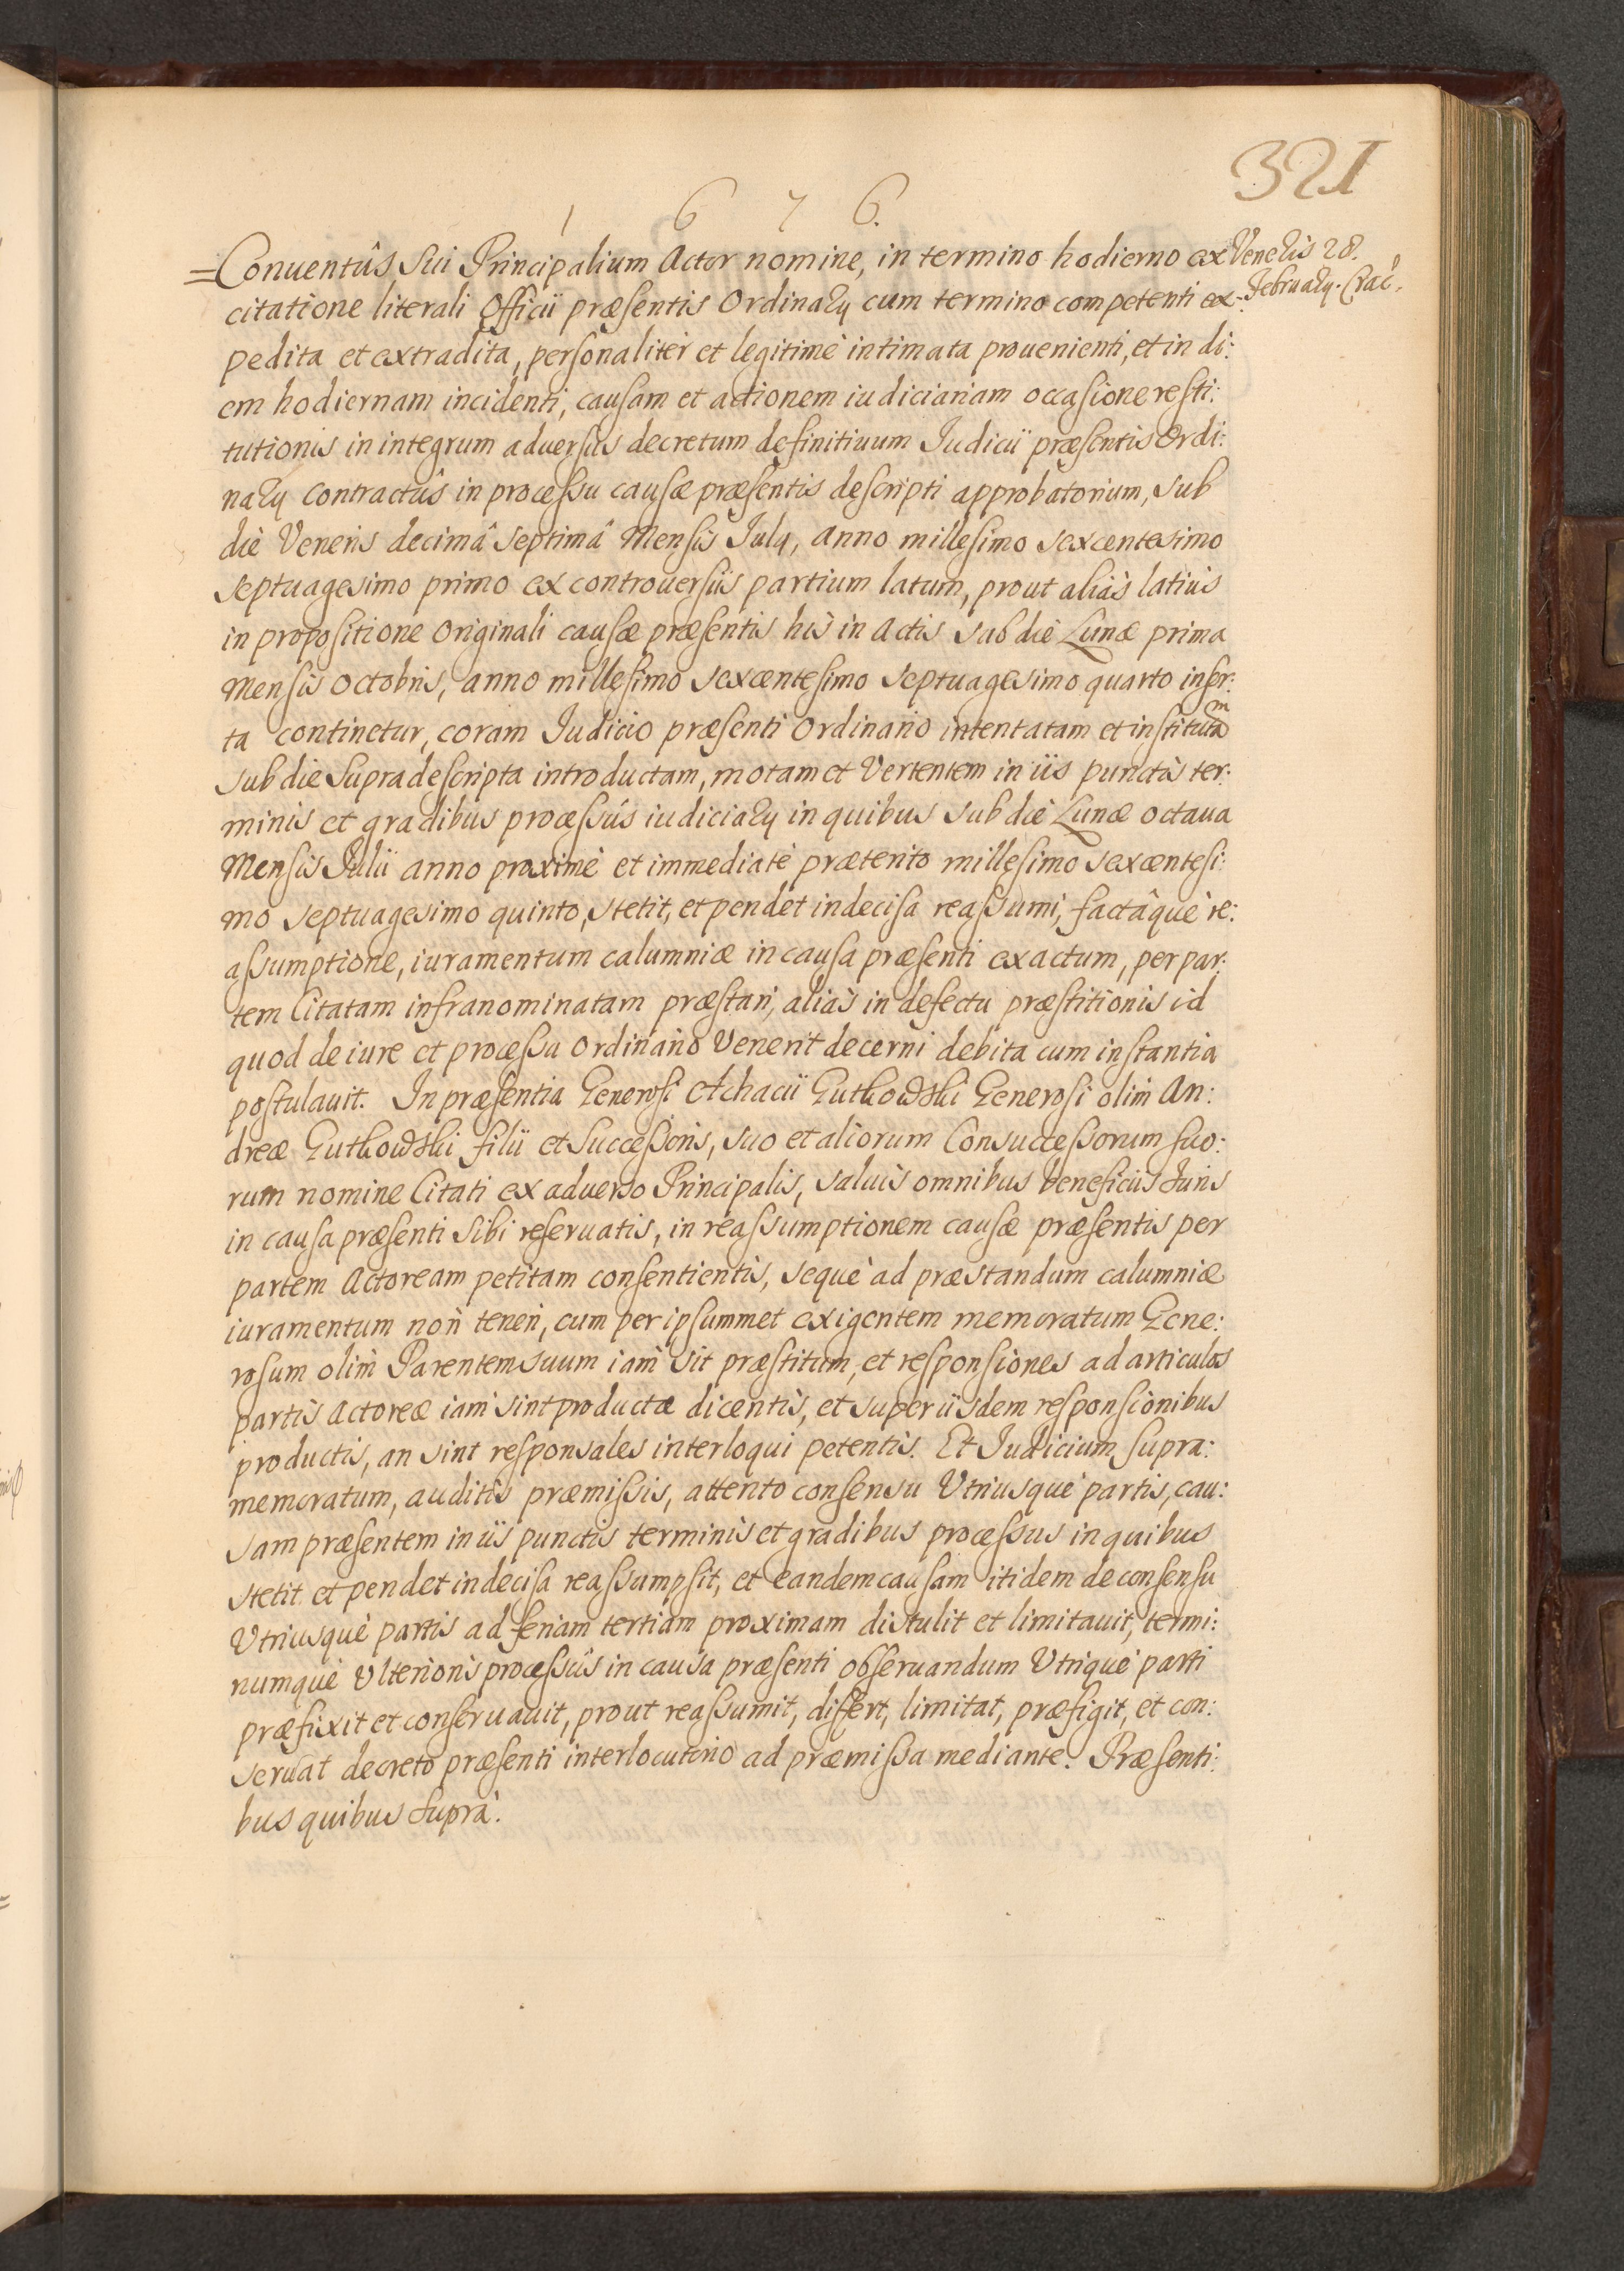 321
1 6 7 6.
=Conuentûs Sui Principalium Actor nomine, in termino hodierno ex
Veneris 28.
Februarij. Crac.
citatione literali Officii præsentis Ordinarij cum termino competenti ex:
pedita et extradita, personaliter et legitimè intimata prouenienti, et in di:
em hodiernam incidenti, causam et actionem iudiciariam occasione resti:
tutionis in integrum aduersùs decretum definitiuum Judicii præsentis Ordi:
narij contractûs in processu causæ præsentis descripti approbatorium, sub
die Veneris decimâ septimâ Mensis July, anno millesimo sexcentesimo
septuagesimo primo ex controuersiis partium latum, prout aliàs latiùs
in propositione Originali causæ præsentis his in Actis sub die Lunæ prima
Mensis Octobris, anno millesimo sexcentesimo septuagesimo quarto inser:
ta continetur, coram Judicio præsenti Ordinario intentatam et institutam
sub die Supradescripta introductam, motam et Vertentem in iis punctis ter:
minis et gradibus processûs iudiciarij in quibus sub die Lunæ octaua
Mensis Julii anno proximè et immediatè præterito millesimo sexcentesi:
mo septuagesimo quinto, stetit, et pendet indecisa reassumi, factâque re:
assumptione, iuramentum calumniæ in causa præsenti exactum, per par:
tem Citatam infranominatam præstari, aliàs in defectu præstitionis id
quod de iure et processu Ordinario Venerit decerni debita cum instantia
postulauit. In præsentia Generosi Achacii Gutkowski Generosi olim An:
dreæ Gutkowski filii et Successoris, suo et aliorum Consuccessorum suo:
rum nomine Citati ex aduerso Principalis, saluis omnibus beneficiis Iuris
in causa præsenti sibi reseruatis, in reassumptionem causæ præsentis per
partem Actoream petitam consentientis, seque ad præstandum calumniæ
iuramentum non teneri, cum per ipsummet exigentem memoratum Gene:
rosum olim Parentem suum iam sit præstitum, et responsiones ad articulos
partis Actoreæ iam sint productæ dicentis, et super iisdem responsionibus
productis, an sint responsales interloqui petentis. Et Judicium supra:
memoratum, auditis præmissis, attento consensu Vtriusque partis, cau:
sam præsentem in iis punctis terminis et gradibus processus in quibus
stetit et pendet indecisa reassumpsit, et eandem causam itidem de consensu
Vtriusque partis ad feriam tertiam proximam distulit et limitauit, termi:
numque Vlterioris processûs in causa præsenti obseruandum Vtrique parti
præfixit et conseruauit, prout reassumit, differt, limitat, præfigit, et con:
seruat decreto præsenti interlocutorio ad præmissa mediante. Præsenti:
bus quibus suprà.